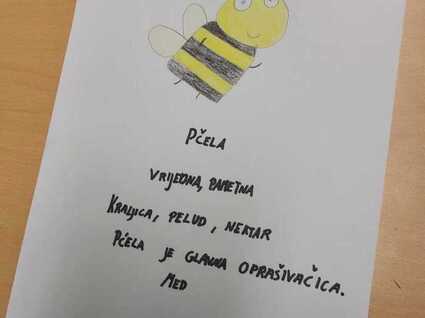 PČELA
VRIJEDNA, PAMETNA
KRALJICA, PELUD, NEKTAR
PČELA JE GLAVNA OPRAŠIVAČICA.
MED